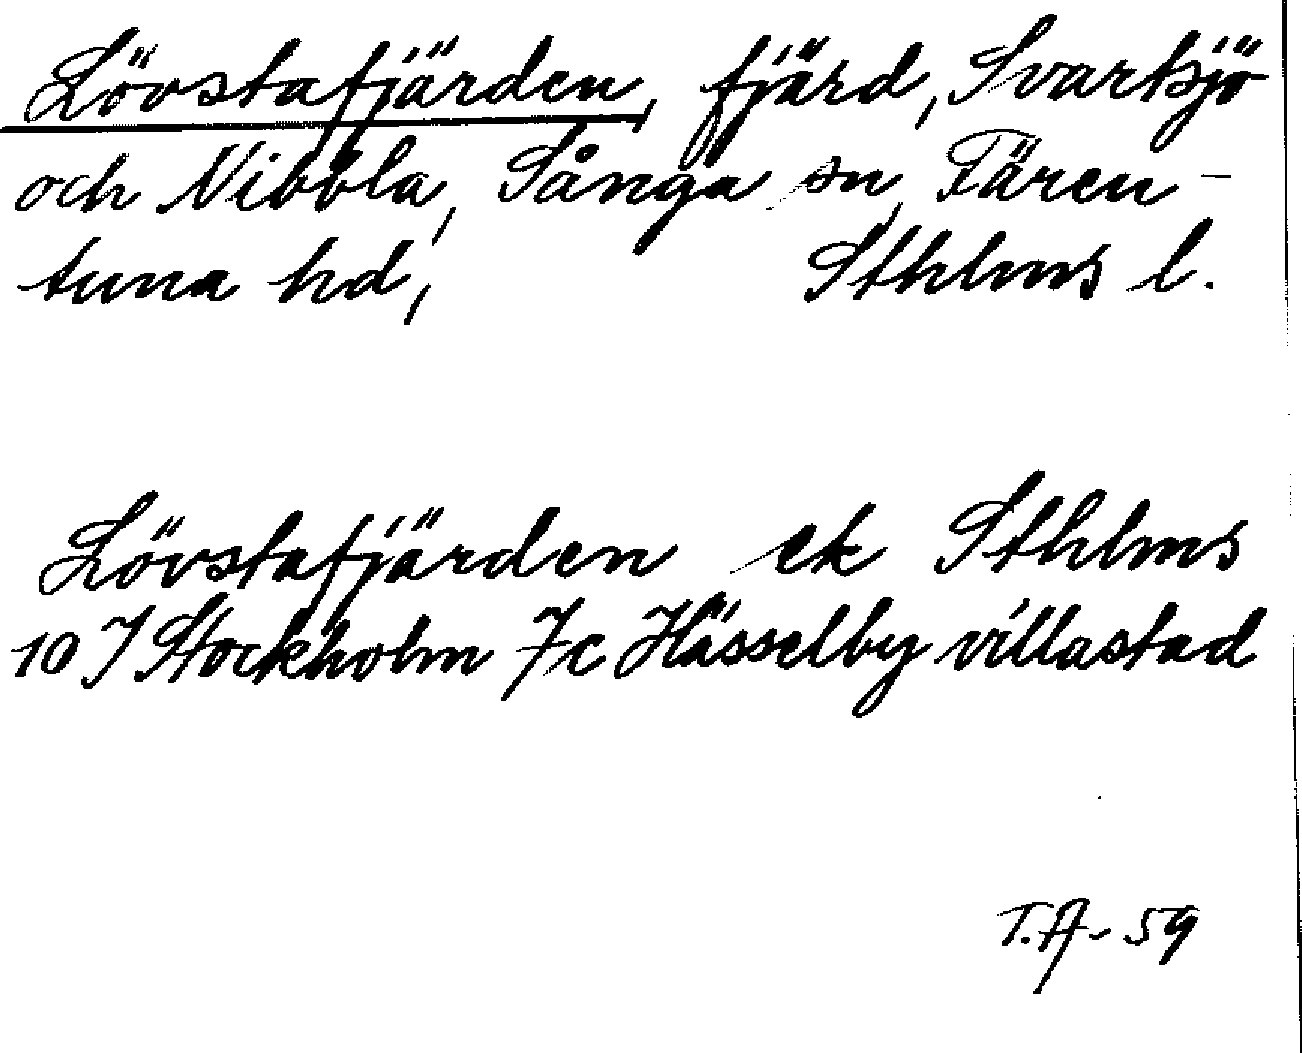 Lövstafjärden, fjärd, Svartsjö
och Nibbla, Sånga sn, Fären-
tuna hd, Sthlms l.
Lövstafjärden ek Sthlms
10 I Stockholm 7c Hässelby villastad
T.A- 59